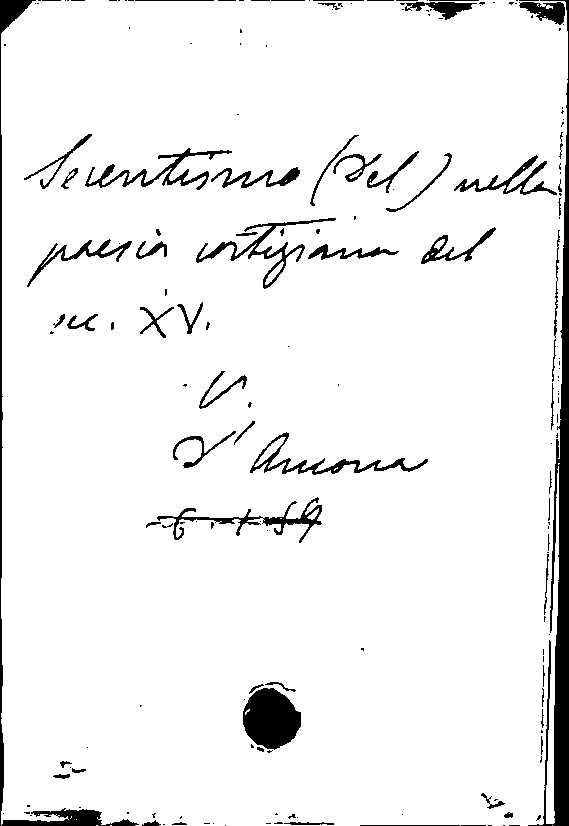 Secentismo (Del) nella
poesia cortigiana del
sec. XV.
V.
D'Ancona